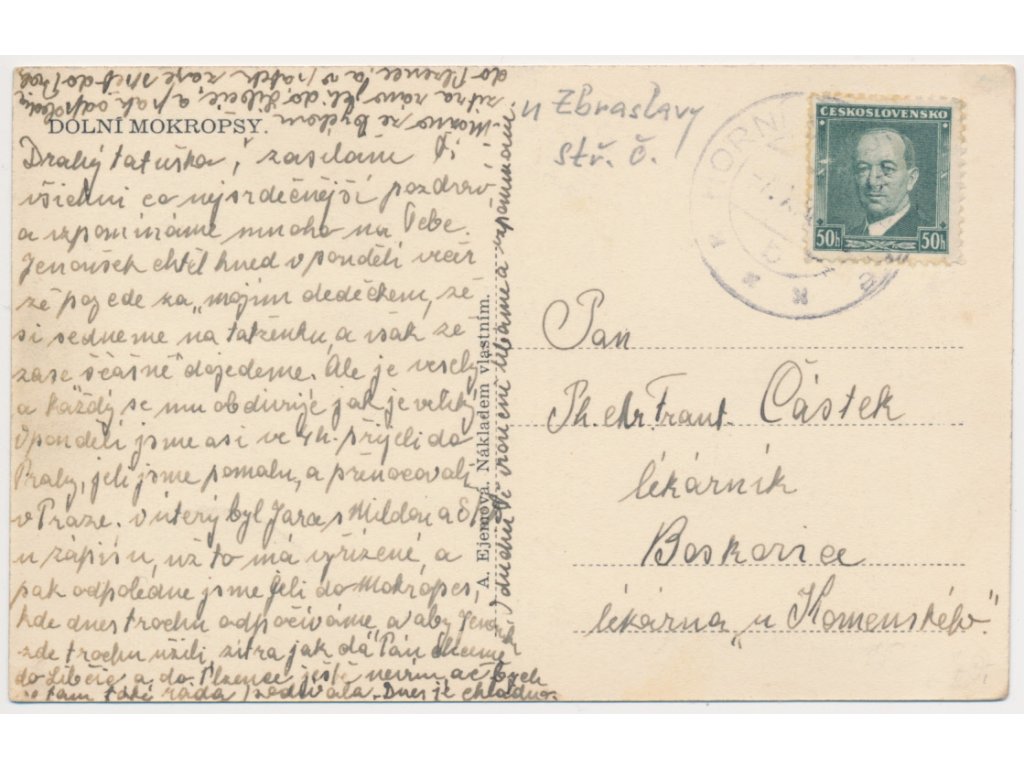 DOLNÍ MOKROPSY.
Drahý tatuška, zasílám Ti
všichni co nejsrdečnější pozdrav
a vzpomínáme mnoho na Tebe.
Jenoušek chtěl hned v pondělí večer
že pojede za „mojim dedéčkem, že
si sedneme na tatrenku, a však že
zase šťastně dojedeme. Ale je veselý
a každý se mu obdivuje jak je veliký
V pondělí jsme asi ve 4 h. přijeli do
Prahy, jeli jsme pomalu, a přenocovali
v Praze. V úterý byl Jara s Mildou a
u zápisu, už to má vyřízené, a
pak odpoledne jsme jeli do Mokropes,
kde dnes trochu odpočíváme, a aby
zde trochu užili, zítra jak dá Pán
do Libčic a do Plzence ještě nevím ač bych
se tam také ráda podívala. Dnes je chladno.
Možno že bychom
zítra ráno jeli do Libčic, a pak odpoledne
do Plzence, a v pátek zase zpět do
A. Ejemová. Nákladem vlastním.
líbáme a vzpomínáme
u Zbraslavy
Stř. Č.
HORNÍ
ČESKOSLOVENSKO
50h 50h
Pan
Ph. Mr. Frant. Částek
lékárník
Boskovice
lékárna „u Komenského".